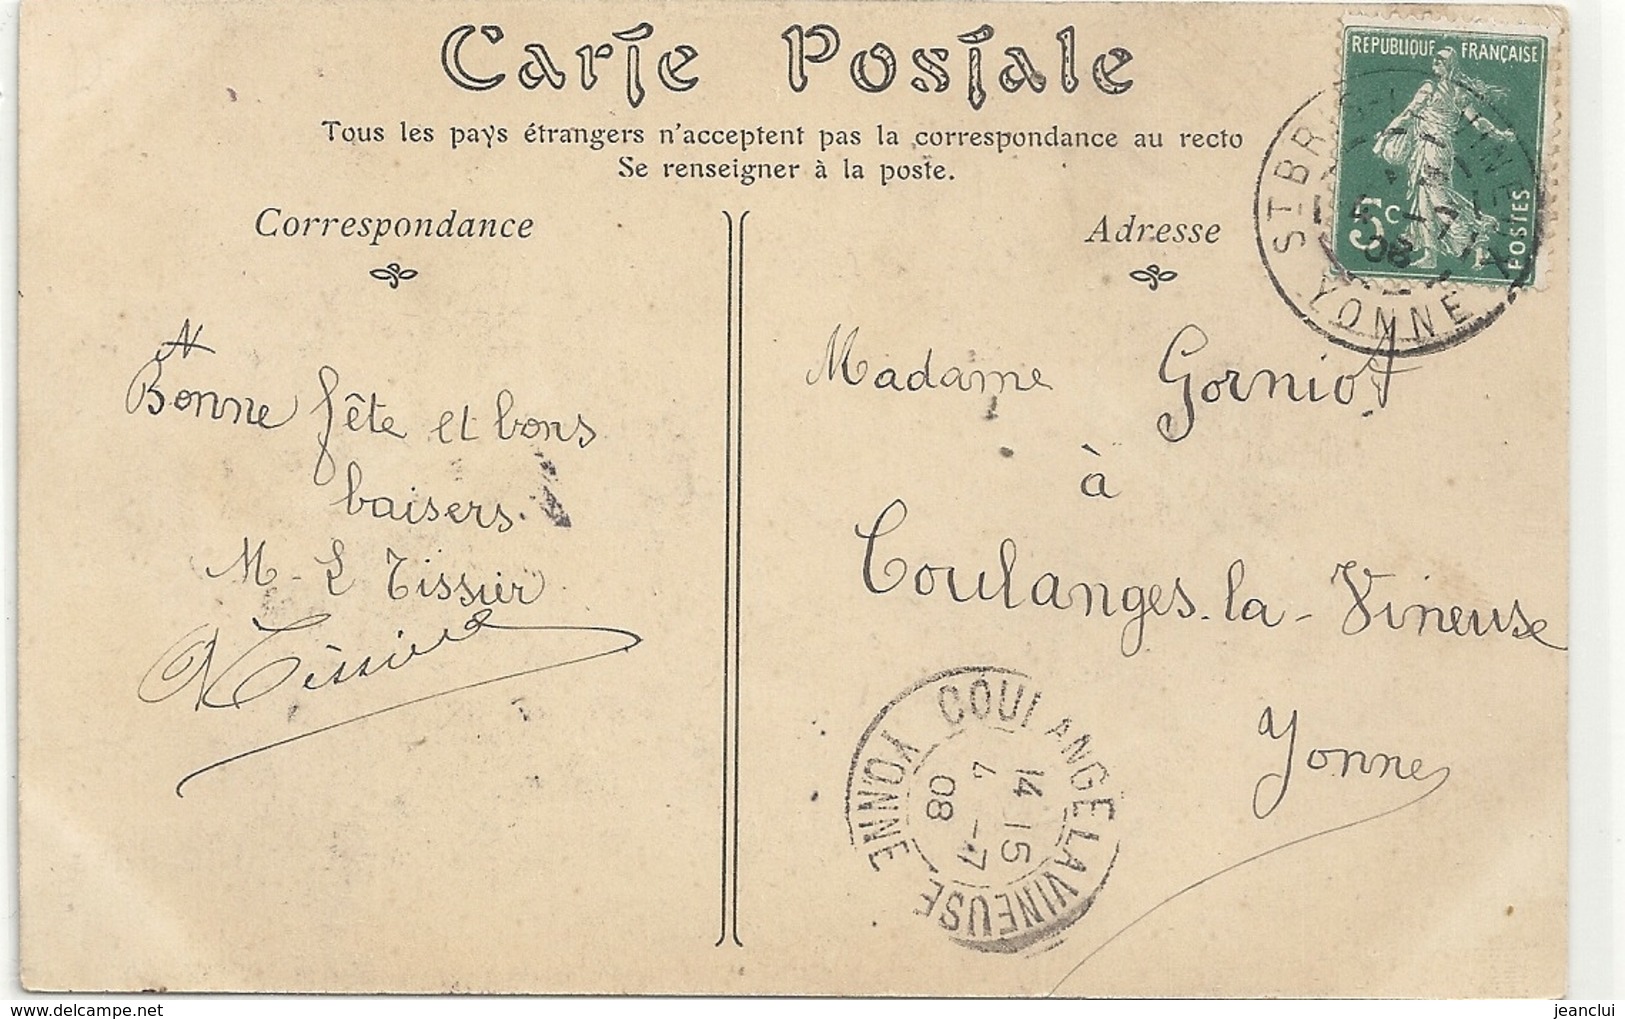 Carte Postale
Tous les pays étrangers n'acceptent pas la correspondance au recto
Se renseigner à la poste.
Correspondance
Adresse
REPUBLIQUE FRANÇAISE
5c
POSTES
ST BRIS
YONNE
08
Bonne fête et bons
baisers.
M-L Tissier
Tissier
Madame Gorniot
à
Coulanges-la-Vineuse
Yonne
COULANGE LA VINEUSE
YONNE
14 15
4 - 7
08
jeanclui